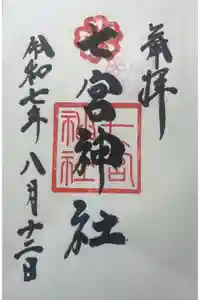 奉拝
七宮神社
七宮神社
令和七年八月十二日